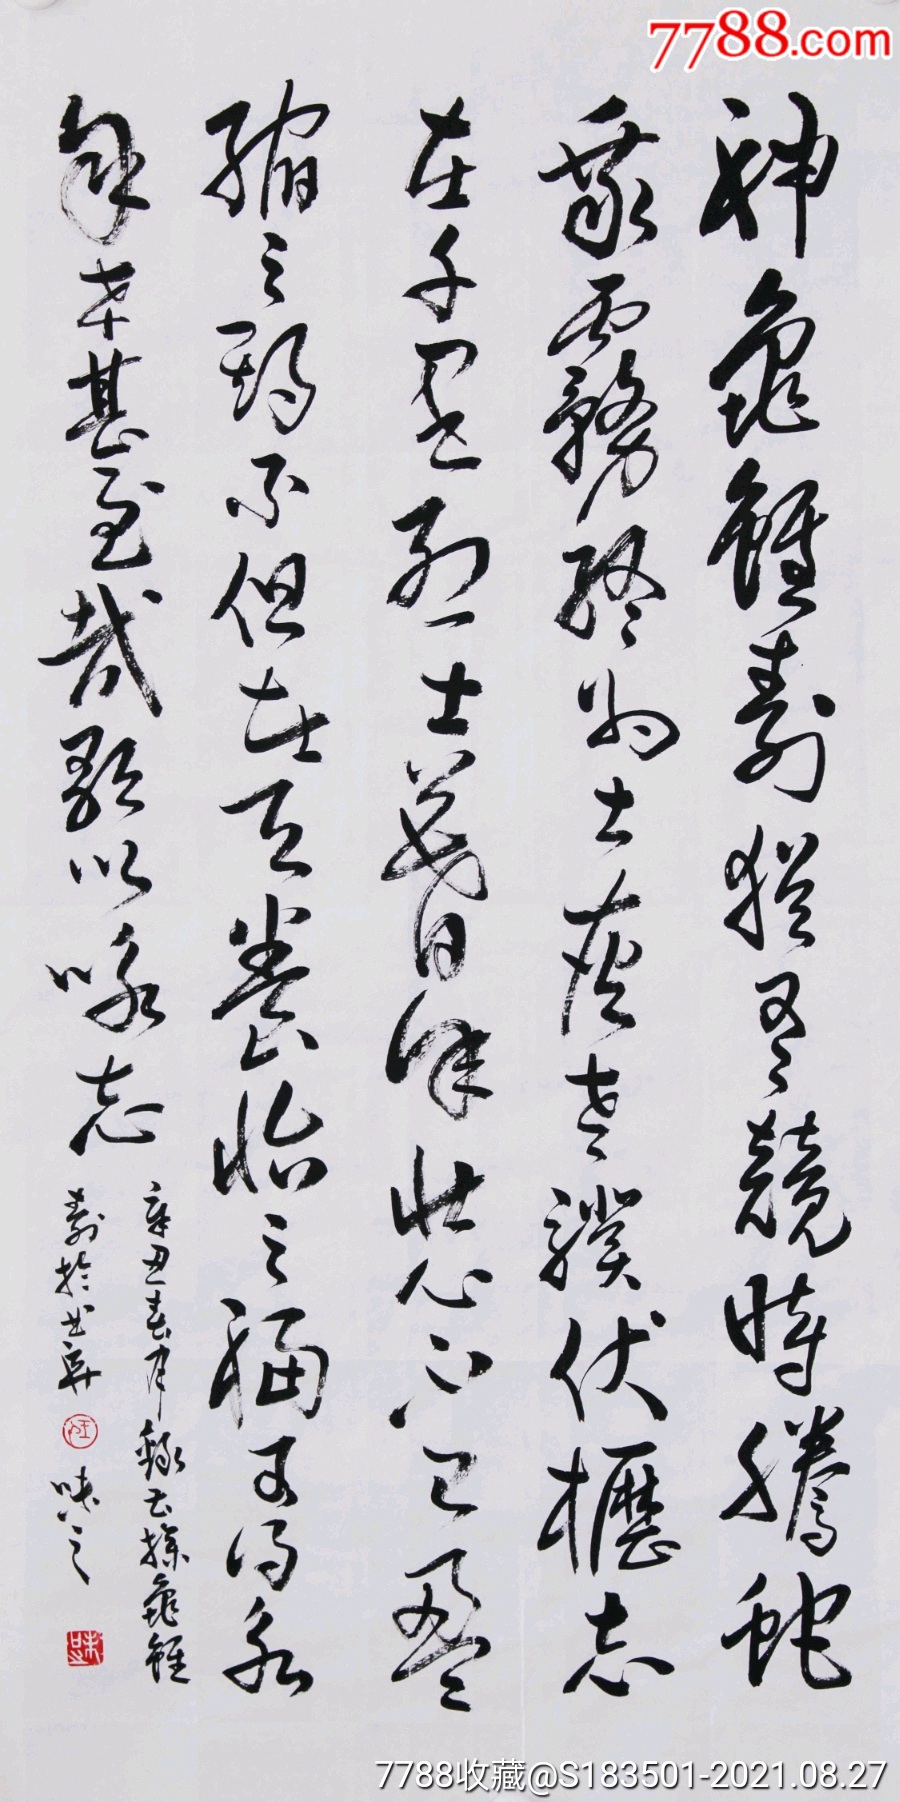 7788.com
神龜雖壽猶有競時騰蛇
乘霧終為土灰老驥伏櫪志
在千里烈士暮年壯心不已盈
縮之期不但在天養怡之福可得永
年幸甚至哉歌以詠志
辛丑春月錄曹操龜雖
壽於 味之
7788收藏@S183501-2021.08.27